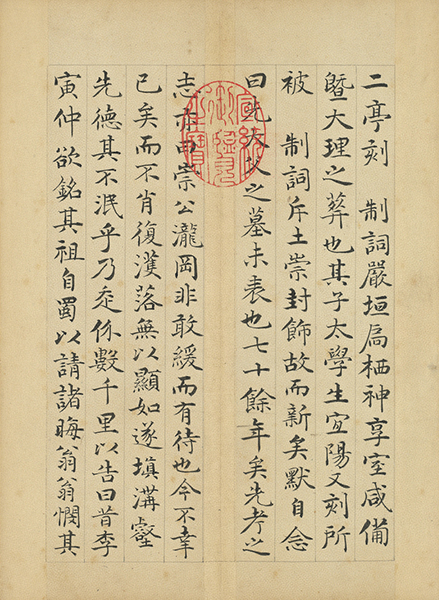 二亭刻 制詞嚴垣扃栖神享室咸備
暨大理之葬也其子太學生宜陽又刻所
被 制詞斥土崇封飾故而新矣默自念
曰先大父之墓未表也七十餘年矣先考之
志亦由崇公瀧岡非敢緩而有待也今不幸
已矣而不肖復濩落無以顯如遂填溝壑
先德其不泯乎乃走伻數千里以告曰昔李
寅仲欲銘其祖自蜀以請諸晦翁翁憫其
宣統御覽之寶